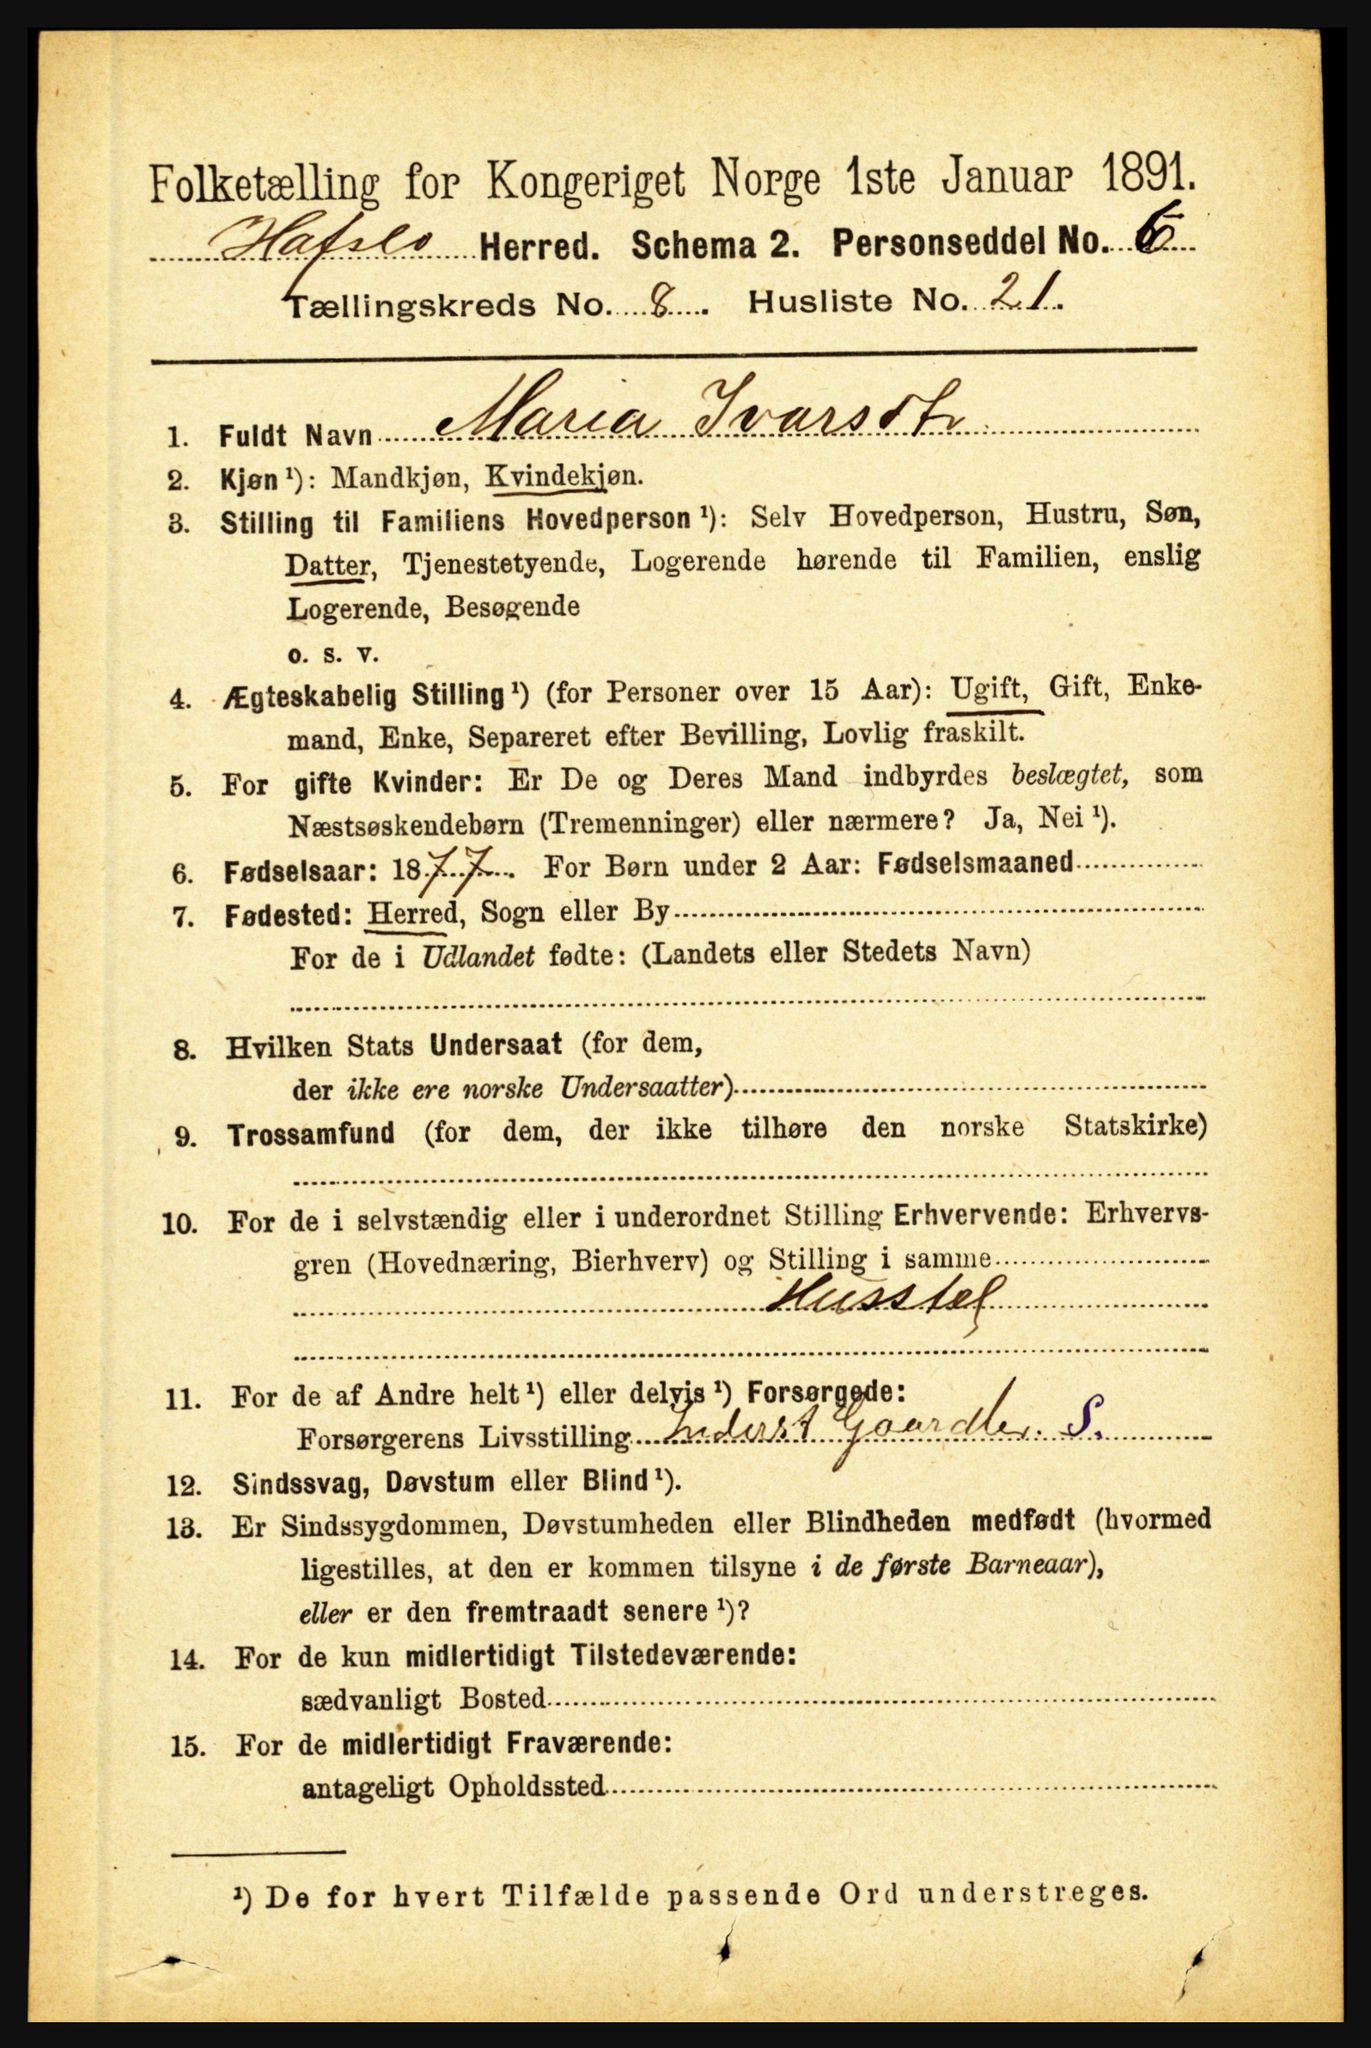 Folketælling for Kongeriget Norge 1ste Januar 1891.
Hafslo Herred. Schema 2. Personseddel No. 6
Tællingskreds No. 8. Husliste No. 21.
1. Fuldt Navn Maria Ivarsdtr
2. Kjøn ¹): Mandkjøn, Kvindekjøn.
3. Stilling til Familiens Hovedperson ¹): Selv Hovedperson, Hustru, Søn,
Datter, Tjenestetyende, Logerende hørende til Familien, enslig
Logerende, Besøgende
o. s. v.
4. Ægteskabelig Stilling ¹) (for Personer over 15 Aar): Ugift, Gift, Enke-
mand, Enke, Separeret efter Bevilling, Lovlig fraskilt.
5. For gifte Kvinder: Er De og Deres Mand indbyrdes beslægtet, som
Næstsøskendebørn (Tremenninger) eller nærmere? Ja, Nei ¹).
6. Fødselsaar: 1877. For Børn under 2 Aar: Fødselsmaaned
7. Fødested: Herred, Sogn eller By
For de i Udlandet fødte: (Landets eller Stedets Navn)
8. Hvilken Stats Undersaat (for dem,
der ikke ere norske Undersaatter)
9. Trossamfund (for dem, der ikke tilhøre den norske Statskirke)
10. For de i selvstændig eller i underordnet Stilling Erhvervende: Erhvervs-
gren (Hovednæring, Bierhverv) og Stilling i samme
Husstel
11. For de af Andre helt ¹) eller delvis ¹) Forsørgede:
Forsørgerens Livsstilling Inderst S.
12. Sindssvag, Døvstum eller Blind ¹).
13. Er Sindssygdommen, Døvstumheden eller Blindheden medfødt (hvormed
ligestilles, at den er kommen tilsyne i de første Barneaar),
eller er den fremtraadt senere ¹)?
14. For de kun midlertidigt Tilstedeværende:
sædvanligt Bosted
15. For de midlertidigt Fraværende:
antageligt Opholdssted
¹) De for hvert Tilfælde passende Ord understreges.